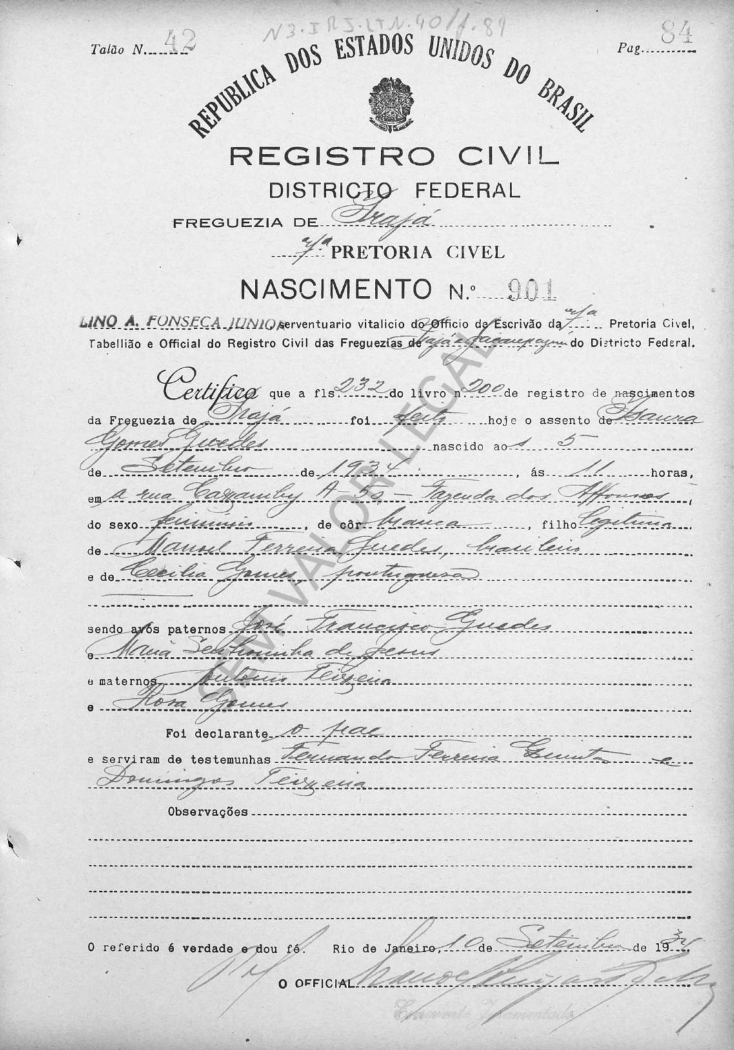 N3.IRJ.LTN.40/f.84
Talão N. 42 Pag. 84
REPUBLICA DOS ESTADOS UNIDOS DO BRASIL
REGISTRO CIVIL
DISTRICTO FEDERAL
FREGUEZIA DE Irajá
7ª PRETORIA CIVEL
NASCIMENTO N.º 901
LINO A. FONSECA JUNIOR serventuario vitalicio do Officio de Escrivão da 7ª Pretoria Civel,
Tabellião e Official do Registro Civil das Freguezias de Irajá e Jacarepaguá do Districto Federal.
Certifico que a fls 232 do livro n. 200 de registro de nascimentos
da Freguezia de Irajá foi feito hoje o assento de Isaura
Gomes Guedes nascido aos 5
de Setembro de 1934, ás 11 horas,
em a rua A 53 - Fazenda dos Affonsos,
do sexo feminino, de côr branca, filho legitima
de Manoel Ferreira Guedes, brasileiro
e de Cecilia Gomes, portuguesa
sendo avós paternos José Francisco Guedes
e Maria Senhorinha de Jesus
e maternos Antonio Teixeira
e Rosa Gomes
Foi declarante o pae
e serviram de testemunhas Fernando Ferreira e
Domingos Teixeira
Observações
O referido é verdade e dou fé. Rio de Janeiro, 10 de Setembro de 1934
O OFFICIAL
Escrevente Juramentado
SEM VALOR LEGAL